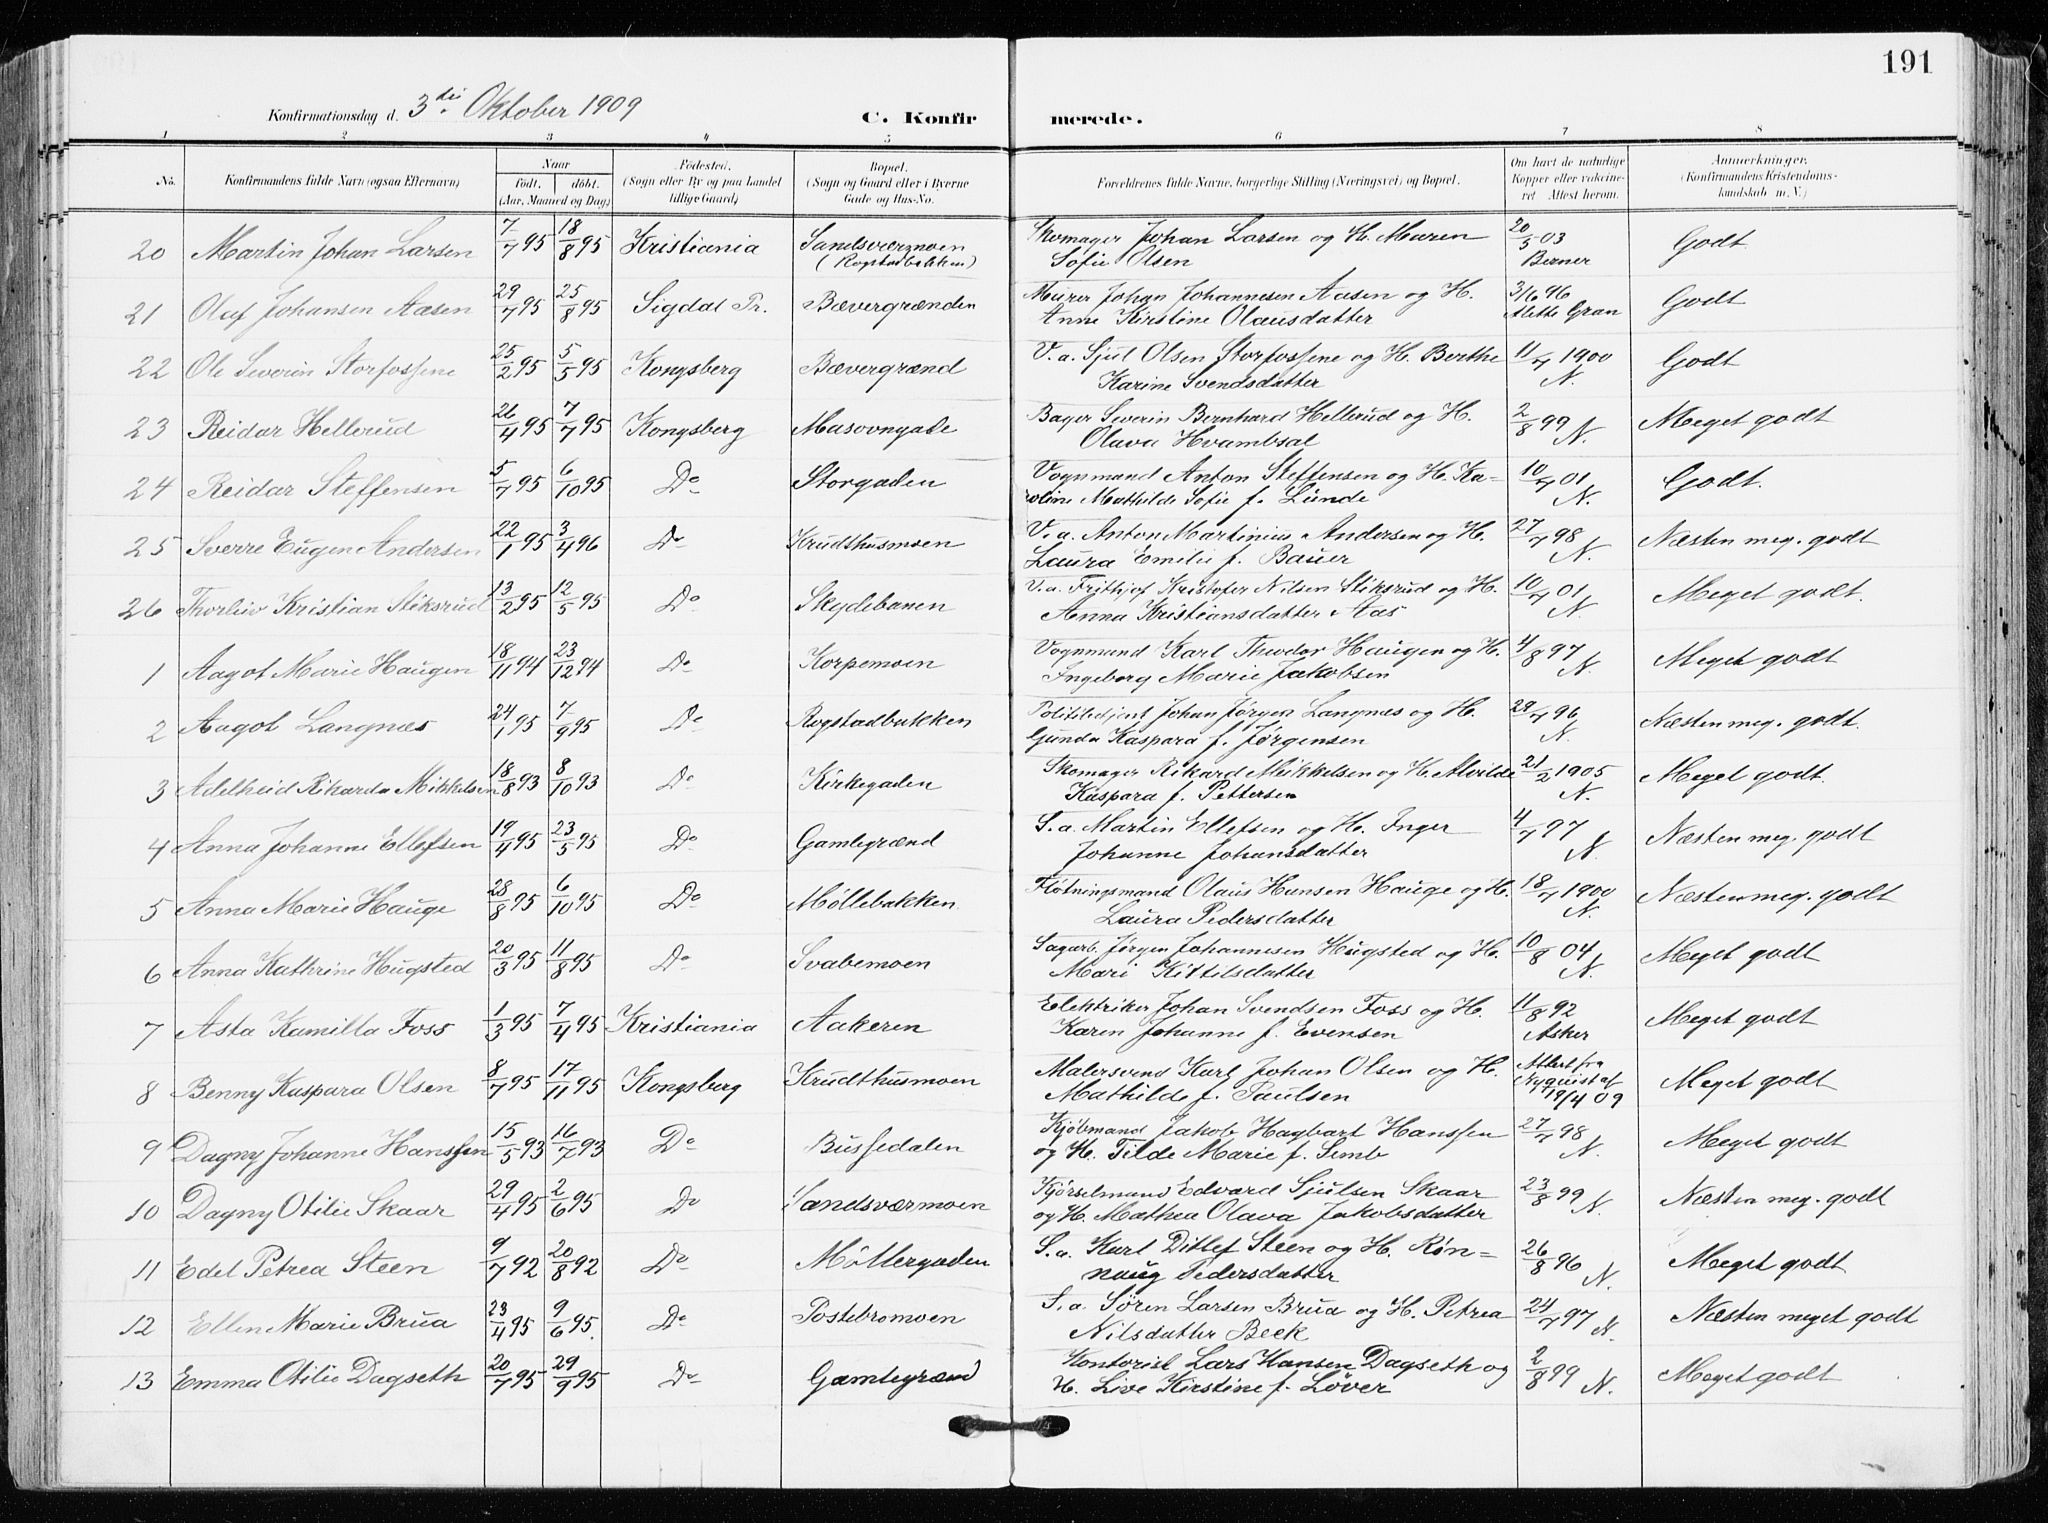 191
Konfirmationsdag d. 3die Oktober 1909 C. Konfirmerede.
1 2 3 4 5 6 7 8
No. Konfirmandens fulde Navn (ogsaa Efternavn) Naar født. døbt. (Aar, Maaned og Dag) Fødested. (Sogn eller By og paa Landet tillige Gaard) Bopæl. (Sogn og Gaard eller i Byerne Gade og Hus-No. Forældrenes fulde Navne, borgerlige Stilling (Næringsvei) og Bopæl. Om havt de naturlige Kopper eller vakcineret Attest herom. Anmerkninger. (Konfirmandens Kristendomskundskab m. V.)
20 Martin Johan Larsen 7/7 95 18/8 95 Kristiania Sandsværmoen (Rogstadbakken) Skomager Johan Larsen og H. Maren Sofie Olsen 20/5 03 Berner Godt.
21 Oluf Johansen Aasen 29/7 95 25/8 95 Sigdal Pr. Bævergrænden Murer Johan Johannesen Aasen og H. Anne Kirstine Olausdatter 3/6 96 Alette Gran Godt
22 Ole Severin Storfossene 25/2 95 5/5 95 Kongsberg Bævergrænd V.a. Sjul Olsen Storfossene og H. Berthe Karine Svendsdatter 11/7 1900 N. Godt
23 Reidar Hellerud 26/4 95 7/7 95 Kongsberg Masovngade Bager Severin Bernhard Hellerud og H. Olava Hvambsal 2/8 99 N. Meget godt
24 Reidar Steffensen 5/7 95 6/10 95 Do Storgaden Vognmand Anton Steffensen og H. Karoline Mathilde Sofie f. Lunde 10/7 01 N. Godt.
25 Sverre Eugen Andersen 22/1 95 3/4 96 Do Krudthusmoen V.a. Anton Martinius Andersen og H. Laura Emilie f. Bauer 27/7 98 N. Næsten meg. godt
26 Thorleiv Kristian Stiksrud 13/2 95 12/5 95 Do Skydebanen V.a. Frithjof Kristofer Nilsen Stiksrud og H. Anna Kristiansdatter Aas 10/7 01 N. Meget godt.
1 Aagot Marie Haugen 18/11 94 23/12 94 Do Korpemoen Vognmand Karl Theodor Haugen og H. Ingeborg Marie Jakobsen 4/8 97 N. Meget godt
2 Aagot Langnæs 24/1 95 7/9 95 Do Rogstadbakken Politibetjent Johan Jørgen Langnæs og H. Gunda Kaspara f. Jørgensen 29/7 96 N. Næsten meg. godt.
3 Adelheid Rikarda Mikkelsen 18/8 93 8/10 93 Do Kirkegaden Skomager Rikard Mikkelsen og H. Alvilde Kaspara f. Pettersen 21/2 1905 N. Meget godt.
4 Anna Johanne Ellefsen 19/4 95 23/5 95 Do Gamlegrænd S.a. Martin Ellefsen og H. Inger Johanne Johansdatter 4/7 97 N. Næsten meg. godt
5 Anna Marie Hauge 28/8 95 6/10 95 Do Møllebakken Fløtningsmand Olaus Hansen Hauge og H. Laura Pedersdatter 18/7 1900 N. Næsten meg. godt
6 Anna Kathrine Hugsted 20/3 95 11/8 95 Do Svabemoen Sagarb. Jørgen Johannesen Hugsted og H. Mari Kittilsdatter 10/8 04 N. Meget godt
7 Asta Kamilla Foss 1/3 95 7/4 95 Kristiania Aakeren Elektriker Johan Svendsen Foss og H. Karen Johanne f. Evensen 11/8 92 Asker Meget godt
8 Benny Kaspara Olsen 8/7 95 17/11 95 Kongsberg Krudthusmoen Malersvend Karl Johan Olsen og H. Mathilde f. Paulsen Attest fra Nyquist af 19/4 09 Meget godt
9 Dagny Johanne Hanssen 15/5 93 16/7 93 Do Bussedalen Kjøbmand Jakob Hagbart Hanssen og H. Tilde Marie f. Semb 27/7 98 N. Meget godt
10 Dagny Otilie Skaar 29/4 95 2/6 95 Do Sandsværmoen Kjørselmand Edvard Sjulsen Skaar og H. Mathea Olava Jakobsdatter 23/8 99 N. Næsten meg. godt
11 Edel Petrea Steen 9/7 92 20/8 92 Do Møllergaden S.a. Karl Ditlef Steen og H. Rønnaug Pedersdatter 26/8 96 N. Meget godt
12 Ellen Marie Brua 23/4 95 9/6 95. Do Postebromoen S.a. Søren Larsen Brua og H. Petrea Nilsdatter Beck 24/7 97 N. Næsten meget godt
13 Emma Otilie Dagseth 20/7 95 29/9 95 Do Gamlegrænd Kontorist Lars Hansen Dagseth og H. Live Kirstine f. Løver 2/8 99 N. Meget godt